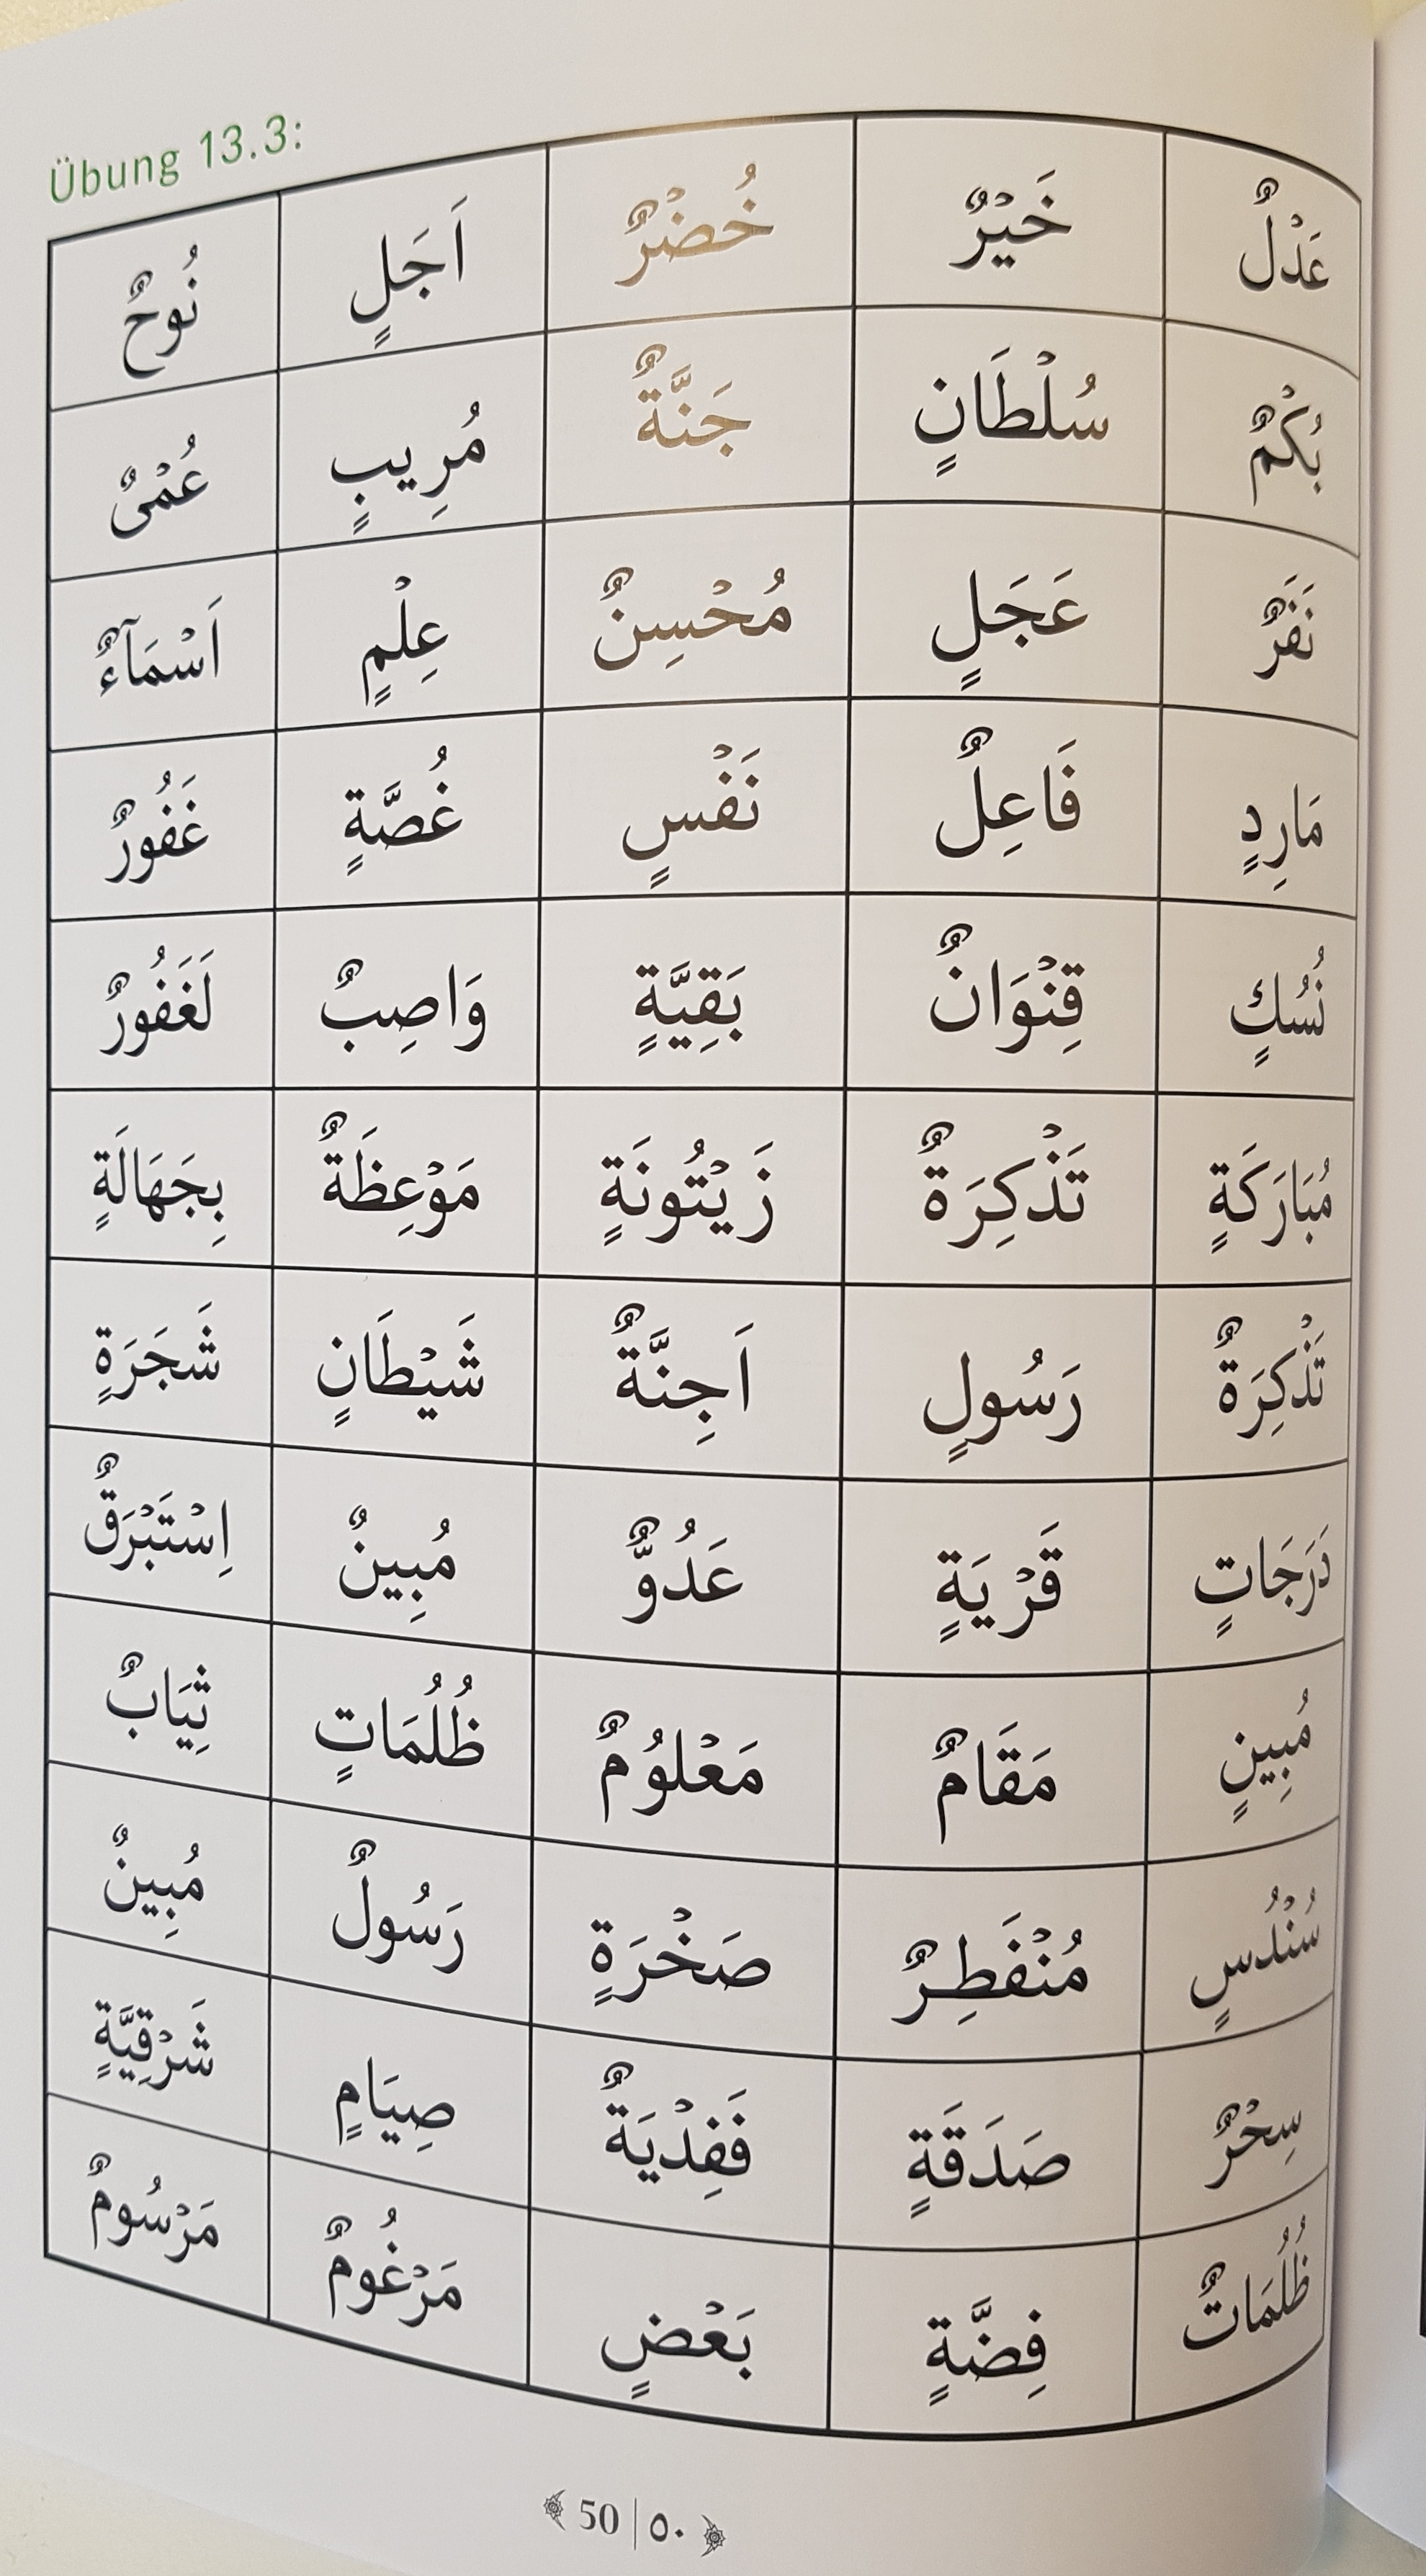 Übung 13.3:
عَدْلٌ خَيْرٌ خُضْرٌ اَجَلٍ نُوحٌ
بُكْمٌ سُلْطَانٍ جَنَّةٌ مُرِيبٍ عُمْىٌ
نَفَرٌ عَجَلٍ مُحْسِنٌ عِلْمٍ اَسْمَآءٌ
مَارِدٍ فَاعِلٌ نَفْسٍ غُصَّةٍ غَفُورٌ
نُسُكٍ قِنْوَانٌ بَقِيَّةٍ وَاصِبٌ لَغَفُورٌ
مُبَارَكَةٍ تَذْكِرَةٌ زَيْتُونَةٍ مَوْعِظَةٌ بِجَهَالَةٍ
تَذْكِرَةٌ رَسُولٍ اَجِنَّةٌ شَيْطَانٍ شَجَرَةٍ
دَرَجَاتٍ قَرْيَةٍ عَدُوٌّ مُبِينٌ اِسْتَبْرَقٌ
مُبِينٍ مَقَامٌ مَعْلُومٌ ظُلُمَاتٍ ثِيَابٌ
سُنْدُسٍ مُنْفَطِرٌ صَخْرَةٍ رَسُولٌ مُبِينٌ
سِحْرٌ صَدَقَةٍ فَفِدْيَةٌ صِيَامٍ شَرْقِيَّةٍ
ظُلُمَاتٌ فِضَّةٍ بَعْضٍ مَرْغُومٌ مَرْسُومٌ
50 | ٥٠